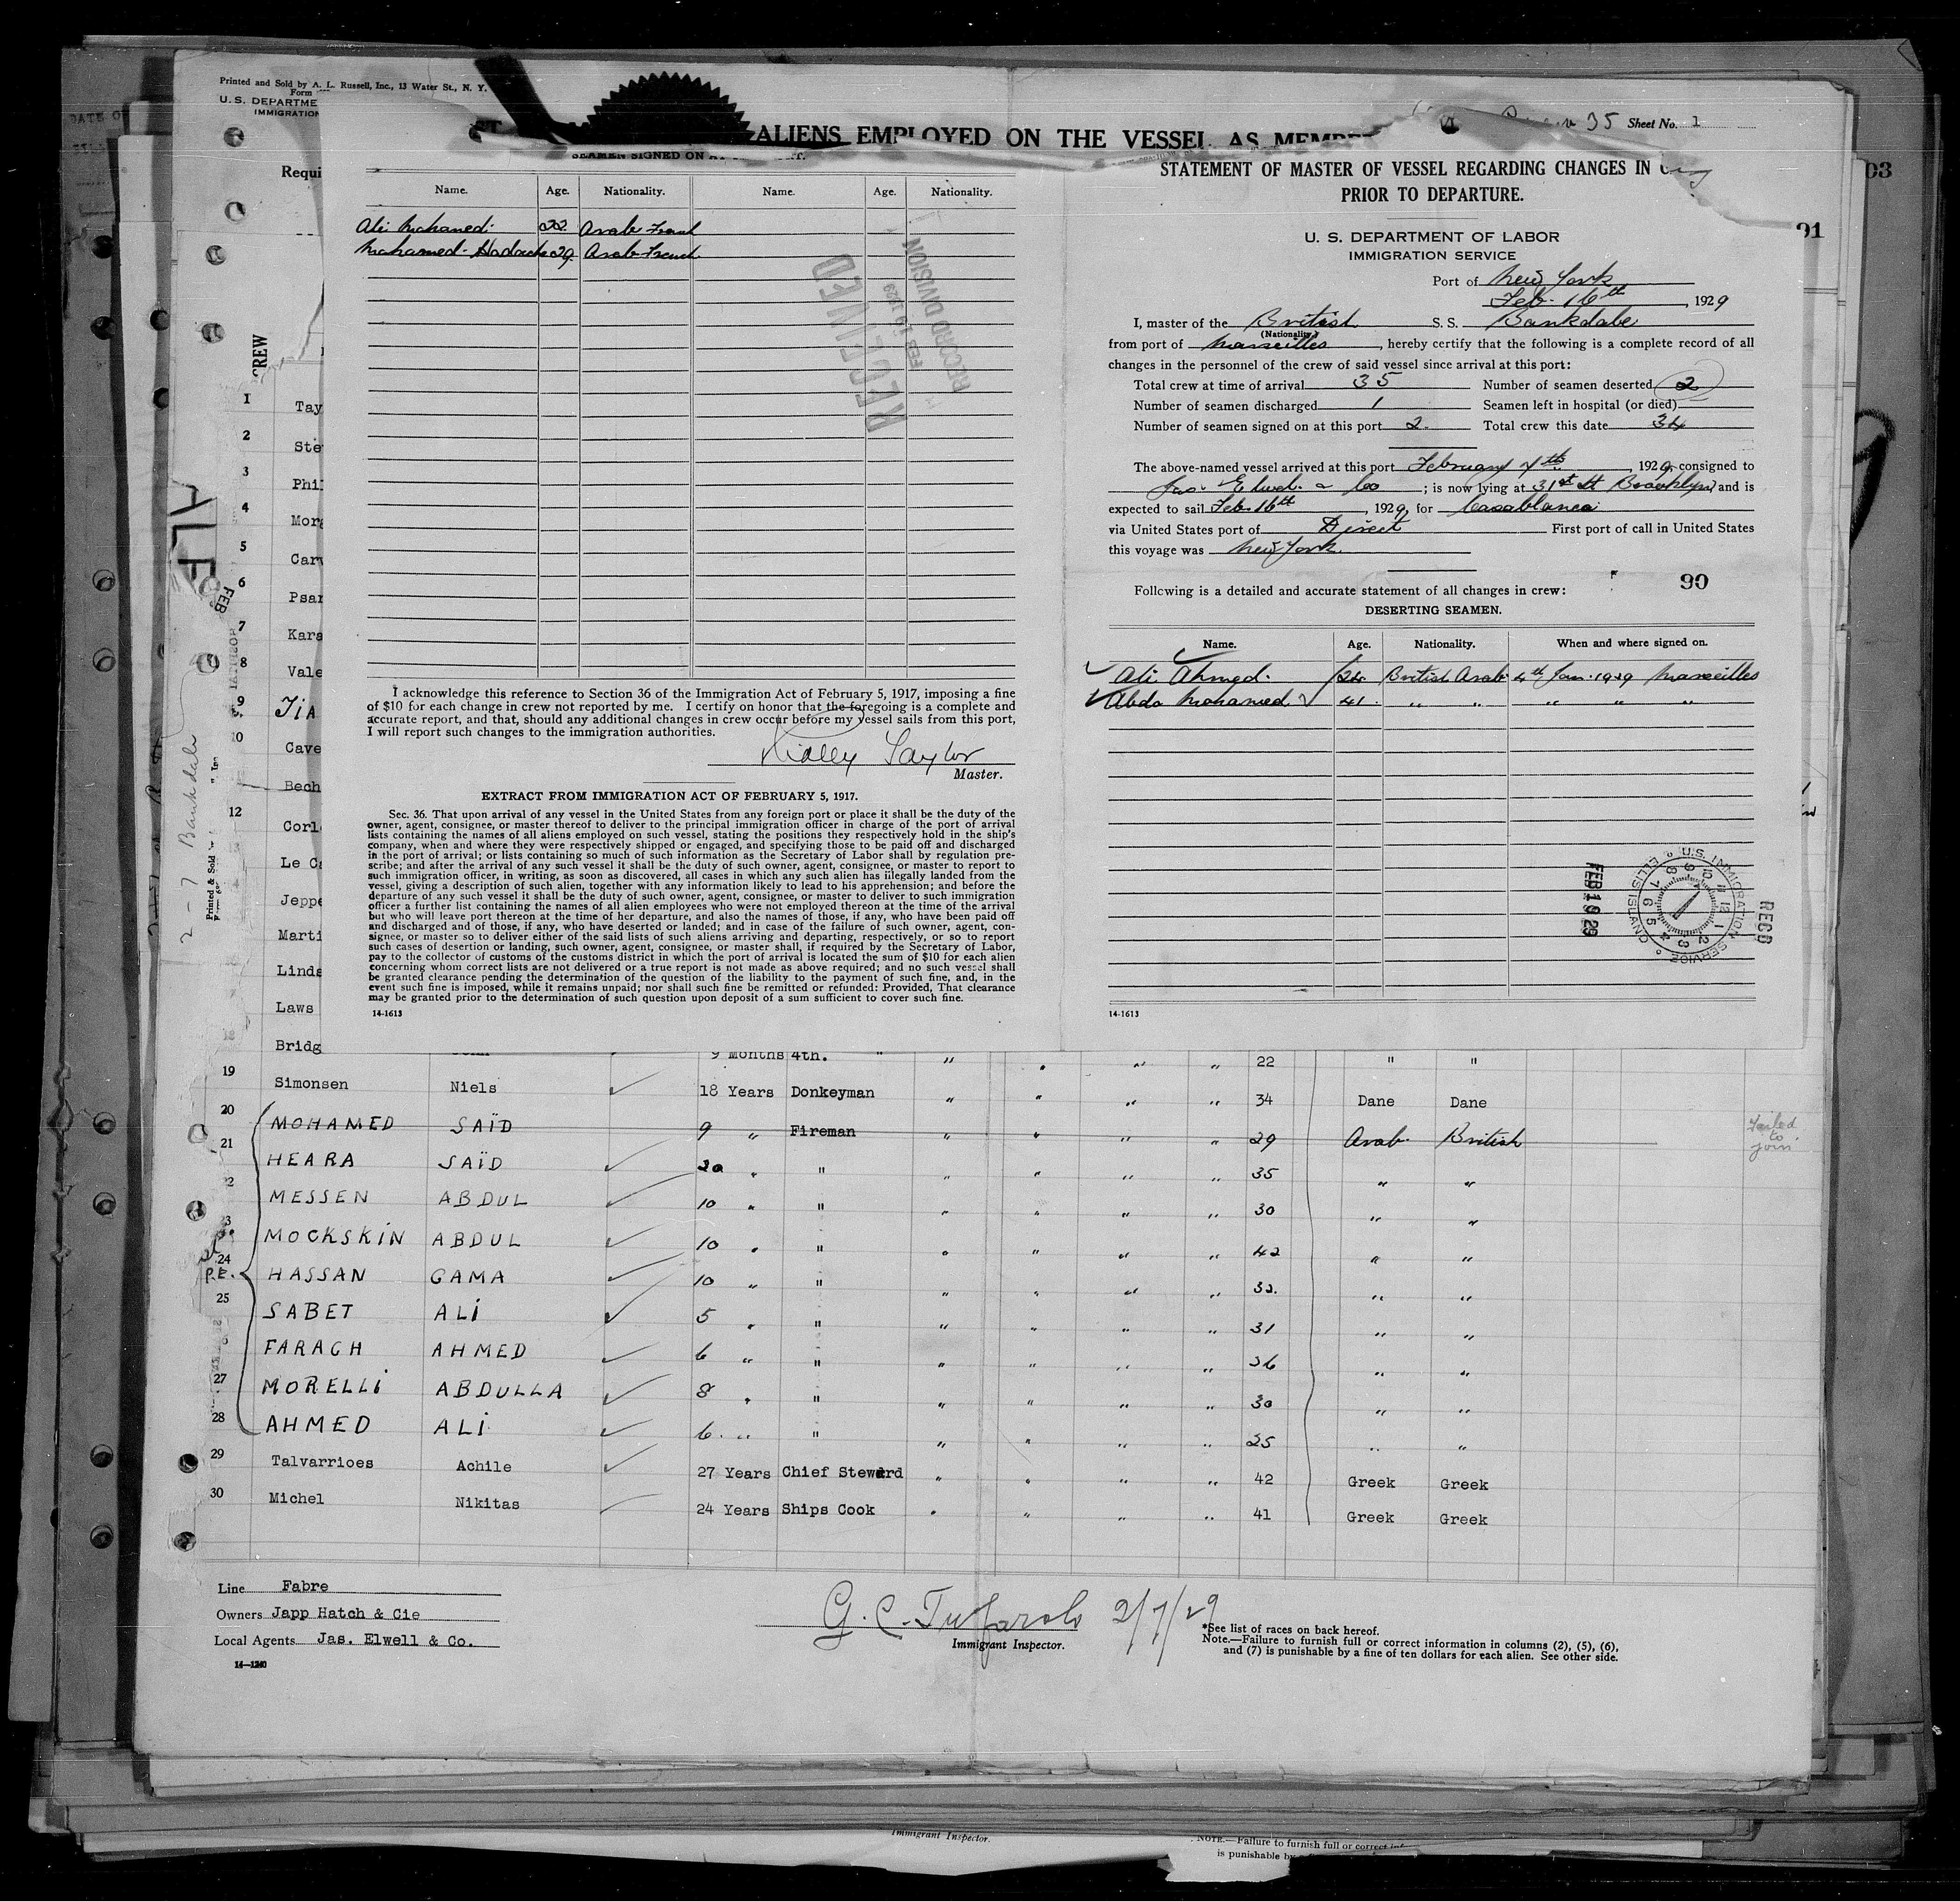 Printed and Sold by A. L. Russell, Inc., 13 Water St., N. Y.
Form
U. S. DEPARTME
IMMIGRATION
ALIENS EMPLOYED ON THE VESSEL AS MEMBE
35 Sheet No. 1
Requi
CREW
03
91
SEAMEN SIGNED ON AT
Name. Age. Nationality. Name. Age. Nationality.
Ali Mohamed 22 Arab French
Mohamed 29 Arab French
RECEIVED
FEB 19 1929
RECORD DIVISION
I acknowledge this reference to Section 36 of the Immigration Act of February 5, 1917, imposing a fine
of $10 for each change in crew not reported by me. I certify on honor that the foregoing is a complete and
accurate report, and that, should any additional changes in crew occur before my vessel sails from this port,
I will report such changes to the immigration authorities.
Ridley Taylor
Master.
EXTRACT FROM IMMIGRATION ACT OF FEBRUARY 5, 1917.
Sec. 36. That upon arrival of any vessel in the United States from any foreign port or place it shall be the duty of the
owner, agent, consignee, or master thereof to deliver to the principal immigration officer in charge of the port of arrival
lists containing the names of all aliens employed on such vessel, stating the positions they respectively hold in the ship's
company, when and where they were respectively shipped or engaged, and specifying those to be paid off and discharged
in the port of arrival; or lists containing so much of such information as the Secretary of Labor shall by regulation pre-
scribe; and after the arrival of any such vessel it shall be the duty of such owner, agent, consignee, or master to report to
such immigration officer, in writing, as soon as discovered, all cases in which any such alien has illegally landed from the
vessel, giving a description of such alien, together with any information likely to lead to his apprehension; and before the
departure of any such vessel it shall be the duty of such owner, agent, consignee, or master to deliver to such immigration
officer a further list containing the names of all alien employees who were not employed thereon at the time of the arrival
but who will leave port thereon at the time of her departure, and also the names of those, if any, who have been paid off
and discharged and of those, if any, who have deserted or landed; and in case of the failure of such owner, agent, con-
signee, or master so to deliver either of the said lists of such aliens arriving and departing, respectively, or so to report
such cases of desertion or landing, such owner, agent, consignee, or master shall, if required by the Secretary of Labor,
pay to the collector of customs of the customs district in which the port of arrival is located the sum of $10 for each alien
concerning whom correct lists are not delivered or a true report is not made as above required; and no such vessel shall
be granted clearance pending the determination of the question of the liability to the payment of such fine, and, in the
event such fine is imposed, while it remains unpaid; nor shall such fine be remitted or refunded: Provided, That clearance
may be granted prior to the determination of such question upon deposit of a sum sufficient to cover such fine.
14-1613
STATEMENT OF MASTER OF VESSEL REGARDING CHANGES IN
PRIOR TO DEPARTURE.
U. S. DEPARTMENT OF LABOR
IMMIGRATION SERVICE
Port of New York
Feb. 16th, 1929
I, master of the British S. S. Bankdale
(Nationality)
from port of Marseilles, hereby certify that the following is a complete record of all
changes in the personnel of the crew of said vessel since arrival at this port:
Total crew at time of arrival 35 Number of seamen deserted 2
Number of seamen discharged 1 Seamen left in hospital (or died)
Number of seamen signed on at this port 2 Total crew this date 34
The above-named vessel arrived at this port February 7th, 1929, consigned to
Jas. Elwell & Co; is now lying at 31st St Brooklyn and is
expected to sail Feb 16th, 1929, for Casablanca
via United States port of Direct First port of call in United States
this voyage was New York.
90
Following is a detailed and accurate statement of all changes in crew:
DESERTING SEAMEN.
Name. Age. Nationality. When and where signed on.
Ali Ahmed. 24 British Arab 4th Jan. 1929 Marseilles
Abdo Mohamed 41 " " " " "
U.S. IMMIGRATION SERVICE ELLIS ISLAND
REC'D
FEB 19 29
14-1613
1 Tay
2 Ste
3 Phil
4 Morg
5 Carv
6 Psar
7 Kara
8 Vale
9
10 Cave
Bech
12 Corl
Le Ca
Jeppe
Marti
Linds
Laws
Bridg
2-7 Bankdale
9 Months 4th. " " " " " 22 " "
19 Simonsen Niels 18 Years Donkeyman " " " " 34 Dane Dane
20 MOHAMED SAÏD 9 " Fireman " " " " 29 Arab British Failed to join
21 HEARA SAÏD 20 " " " " " " 35 " "
22 MESSEN ABDUL 10 " " " " " " 30 " "
23 MOCKSKIN ABDUL 10 " " " " " " 42 " "
24 HASSAN GAMA 10 " " " " " " 32. " "
P.E.
25 SABET ALI 5 " " " " " " 31 " "
FARAGH AHMED 6 " " " " " " 36 " "
27 MORELLI ABDULLA 8 " " " " " " 30 " "
28 AHMED ALI 6 " " " " " " 25 " "
29 Talvarrioes Achile 27 Years Chief Steward " " " " 42 Greek Greek
30 Michel Nikitas 24 Years Ships Cook " " " " 41 Greek Greek
Line Fabre
Owners Japp Hatch & Cie
Local Agents Jas. Elwell & Co.
14—1240
G. C. Tufarolo 2/7/29
Immigrant Inspector.
*See list of races on back hereof.
Note.—Failure to furnish full or correct information in columns (2), (5), (6),
and (7) is punishable by a fine of ten dollars for each alien. See other side.
Immigrant Inspector.
NOTE.—Failure to furnish full or correct
is punishable by